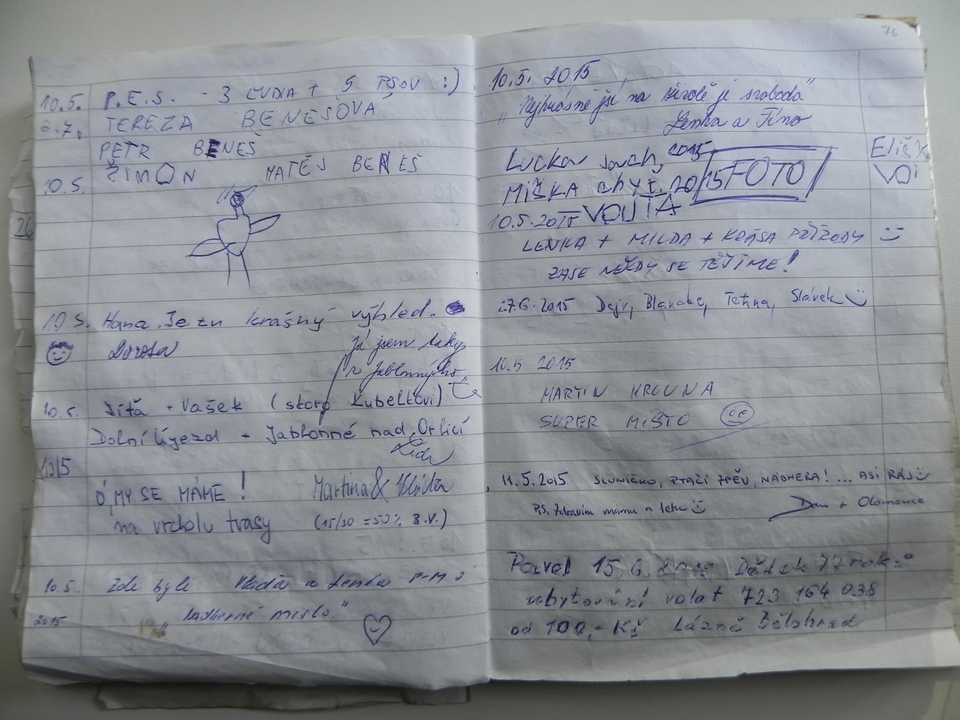 10.5. P.E.S. - 3 LUDIA + 5 PSOV :)
6.7. TEREZA BENEŠOVÁ
PETR BENEŠ
10.5. ŠIMON MATĚJ BENEŠ
10.5. Hana. Je zu krásný výhled.
Dorota
Já jsem taky
z Jablonného
10.5. Jíťa + Vašek (staro Kubelkovi)
Dolní Újezd + Jablonné nad Orlicí
Lída
1015
Ó, MY SE MÁME! Martina &
na vrcholu trasy (15/30 = 50% B.V.)
10.5. Zde byli a Lenka
2015 "nádherné místo."
26
76
10.5. 2015
"Nejkrásnější na je svoboda"
Lenka a
Lucka 2015
MIŠKA 2015 FOTO
Elišk
VOJ
10.5.2015 VOJTA
LENKA + MILDA + KRÁSA PŘÍRODY
ZASE NĚKDY SE TĚŠÍME!
27.6.2015 Blanche, Slávek
10.5 2015
MARTIN
SUPER MÍSTO
11.5.2015 SLUNÍČKO, PTAČÍ ZPĚV, NÁDHERA! ... ASI RÁJ
P.S. Zdravím mámu a
Dan z Olomouce
Pavel 15.6. 77 rok
ubytování volat 723 164 038
od 100,- Kč Lázně Bělohrad